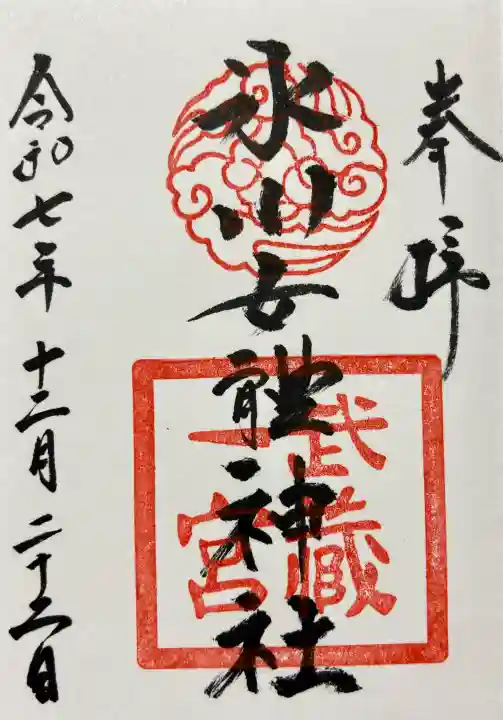 奉拝
氷川女體神社
武蔵
一宮
令和七年十二月二十三日